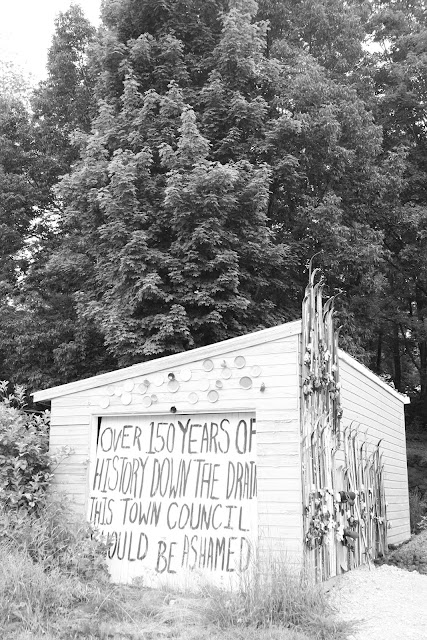 OVER 150 YEARS OF
HISTORY DOWN THE DRAIN
THIS TOWN COUNCIL
SHOULD BE ASHAMED